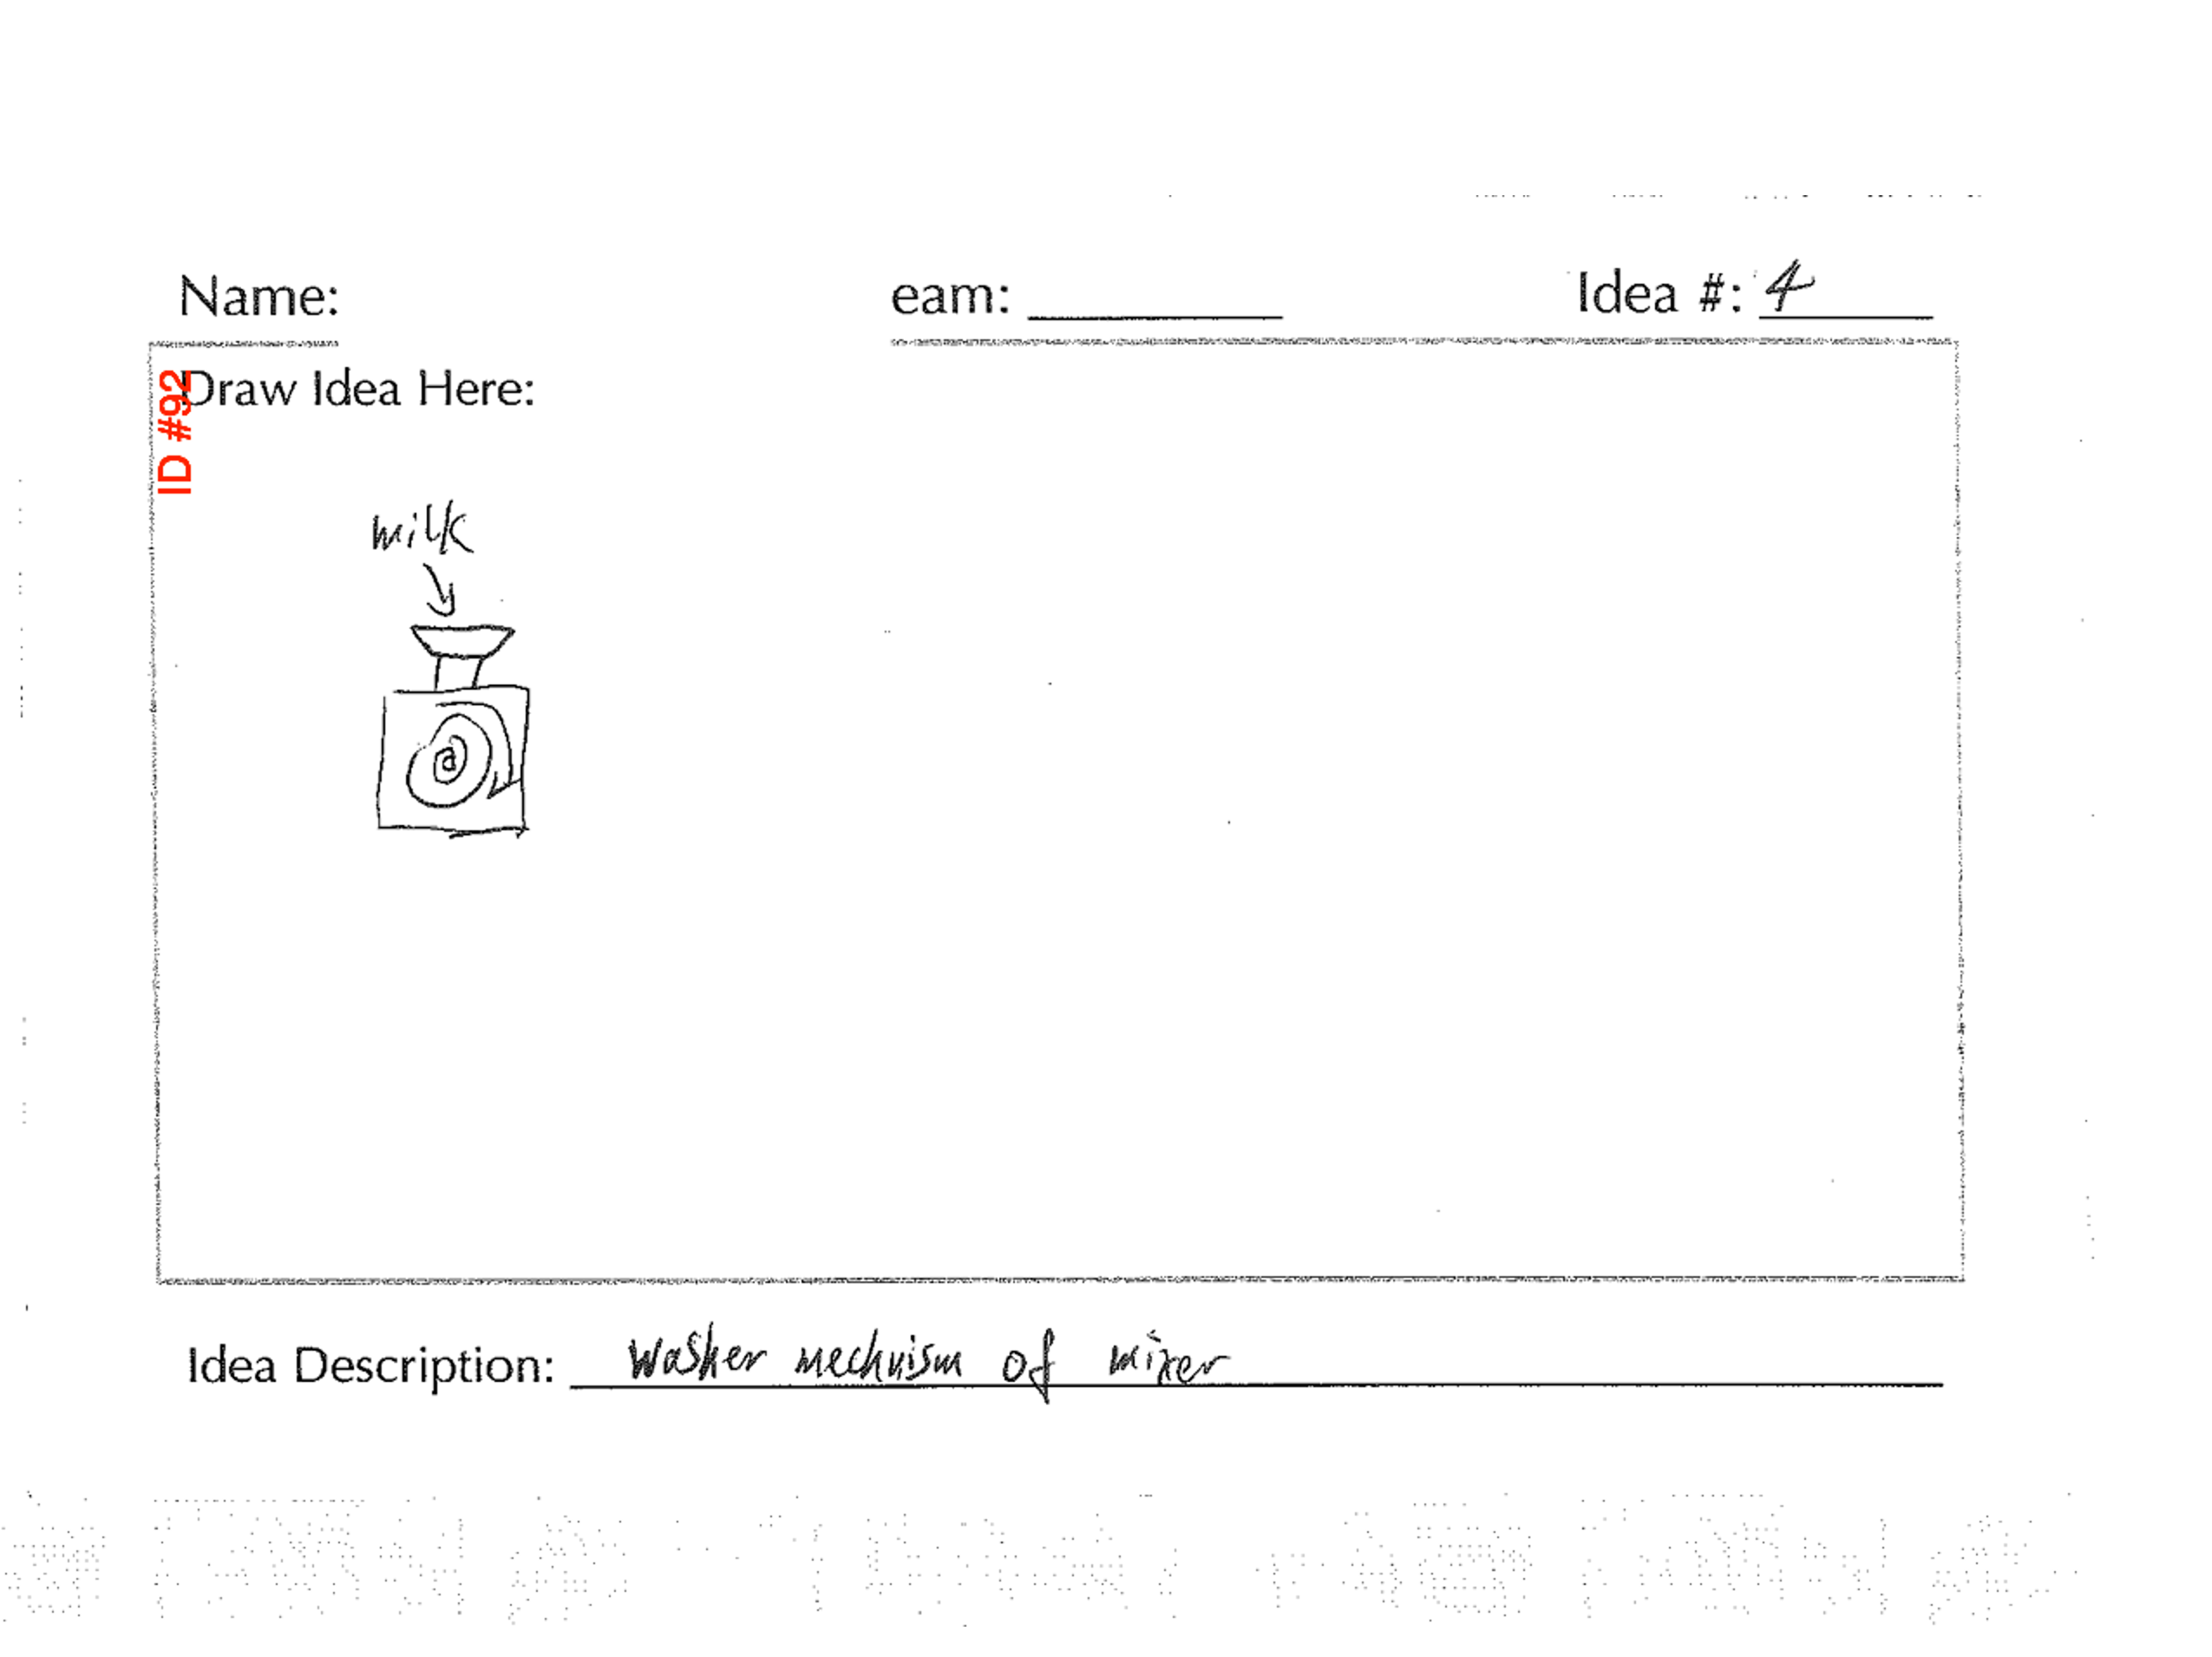 Name: eam: Idea #: 4
Draw Idea Here:
ID #92
milk
Idea Description: Washer mechnism of mixer